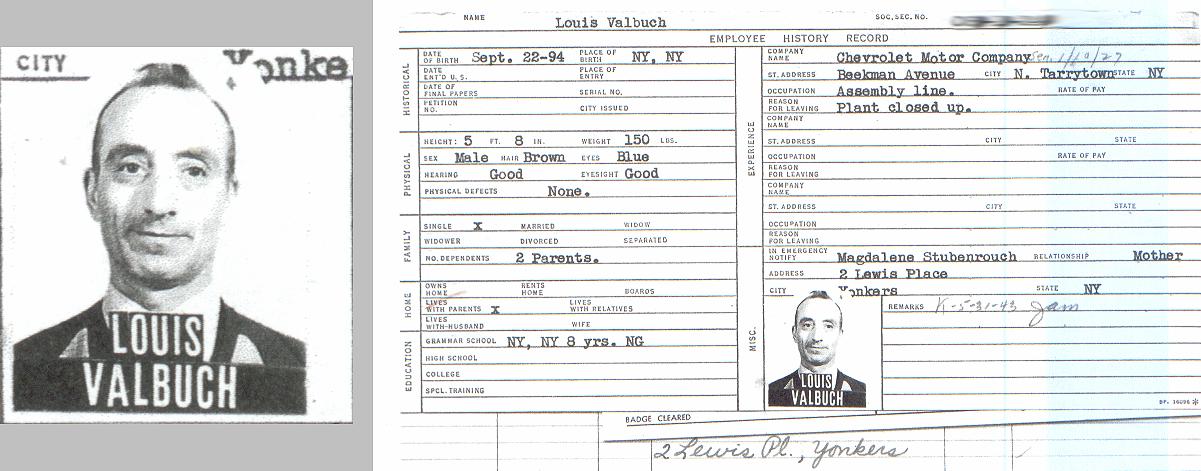 CITY Yonke
LOUIS
VALBUCH
NAME Louis Valbuch SOC. SEC. NO.
EMPLOYEE HISTORY RECORD
HISTORICAL
DATE OF BIRTH Sept. 22-94 PLACE OF BIRTH NY, NY
DATE ENT'D U.S. PLACE OF ENTRY
DATE OF FINAL PAPERS SERIAL NO.
PETITION NO. CITY ISSUED
PHYSICAL
HEIGHT: 5 FT. 8 IN. WEIGHT 150 LBS.
SEX Male HAIR Brown EYES Blue
HEARING Good EYESIGHT Good
PHYSICAL DEFECTS None.
FAMILY
SINGLE X MARRIED WIDOW
WIDOWER DIVORCED SEPARATED
NO. DEPENDENTS 2 Parents.
HOME
OWNS HOME RENTS HOME BOARDS
LIVES WITH PARENTS X LIVES WITH RELATIVES
LIVES WITH-HUSBAND WIFE
EDUCATION
GRAMMAR SCHOOL NY, NY 8 yrs. NG
HIGH SCHOOL
COLLEGE
SPCL. TRAINING
EXPERIENCE
COMPANY NAME Chevrolet Motor Company Sen. 1/10/27
ST. ADDRESS Beekman Avenue CITY N. Tarrytown STATE NY
OCCUPATION Assembly line. RATE OF PAY
REASON FOR LEAVING Plant closed up.
COMPANY NAME
ST. ADDRESS CITY STATE
OCCUPATION RATE OF PAY
REASON FOR LEAVING
COMPANY NAME
ST. ADDRESS CITY STATE
OCCUPATION
REASON FOR LEAVING
MISC.
IN EMERGENCY NOTIFY Magdalene Stubenrouch RELATIONSHIP Mother
ADDRESS 2 Lewis Place
CITY Yonkers STATE NY
REMARKS K-5-31-43
LOUIS
VALBUCH
BADGE CLEARED
2 Lewis Pl., Yonkers